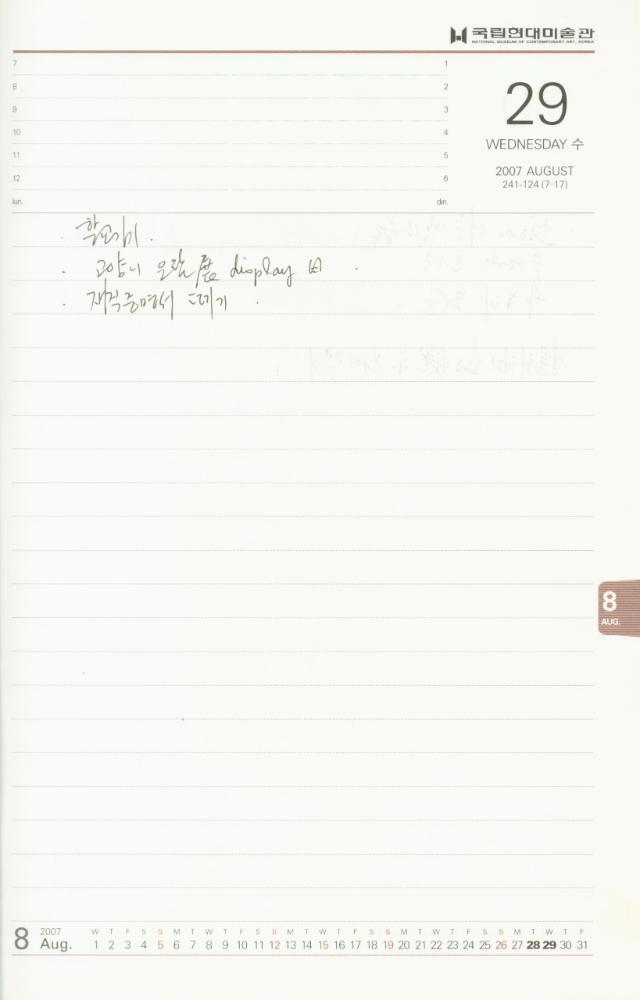 국립현대미술관
NATIONAL MUSEUM OF CONTEMPORARY ART, KOREA
7 1
8 2
9 3
10 4
11 5
12 6
lun. din.
29
WEDNESDAY 수
2007 AUGUST
241-124 (7·17)
· 고양이 display
· 재직증명서 떼기 .
8
AUG.
8 2007 Aug.
W T F S S M T W T F S S M T W T F S S M T W T F S S M T W T F
1 2 3 4 5 6 7 8 9 10 11 12 13 14 15 16 17 18 19 20 21 22 23 24 25 26 27 28 29 30 31